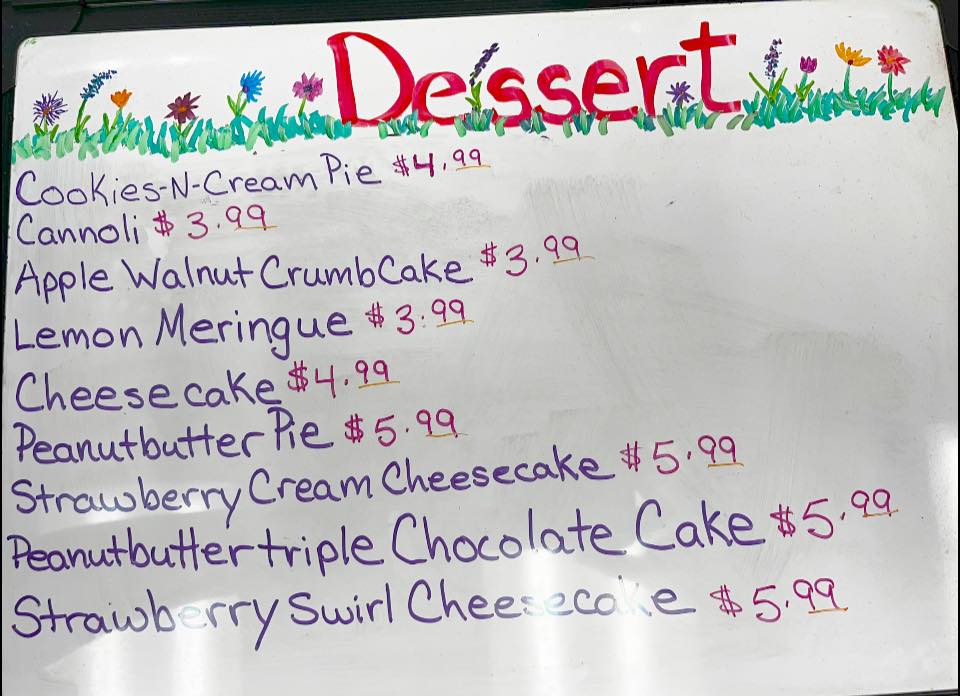 Dessert
Cookies-N-Cream Pie $4.99
Cannoli $3.99
Apple Walnut Crumb Cake $3.99
Lemon Meringue $3.99
Cheesecake $4.99
Peanutbutter Pie $5.99
Strawberry Cream Cheesecake $5.99
Peanutbutter triple Chocolate Cake $5.99
Strawberry Swirl Cheesecake $5.99